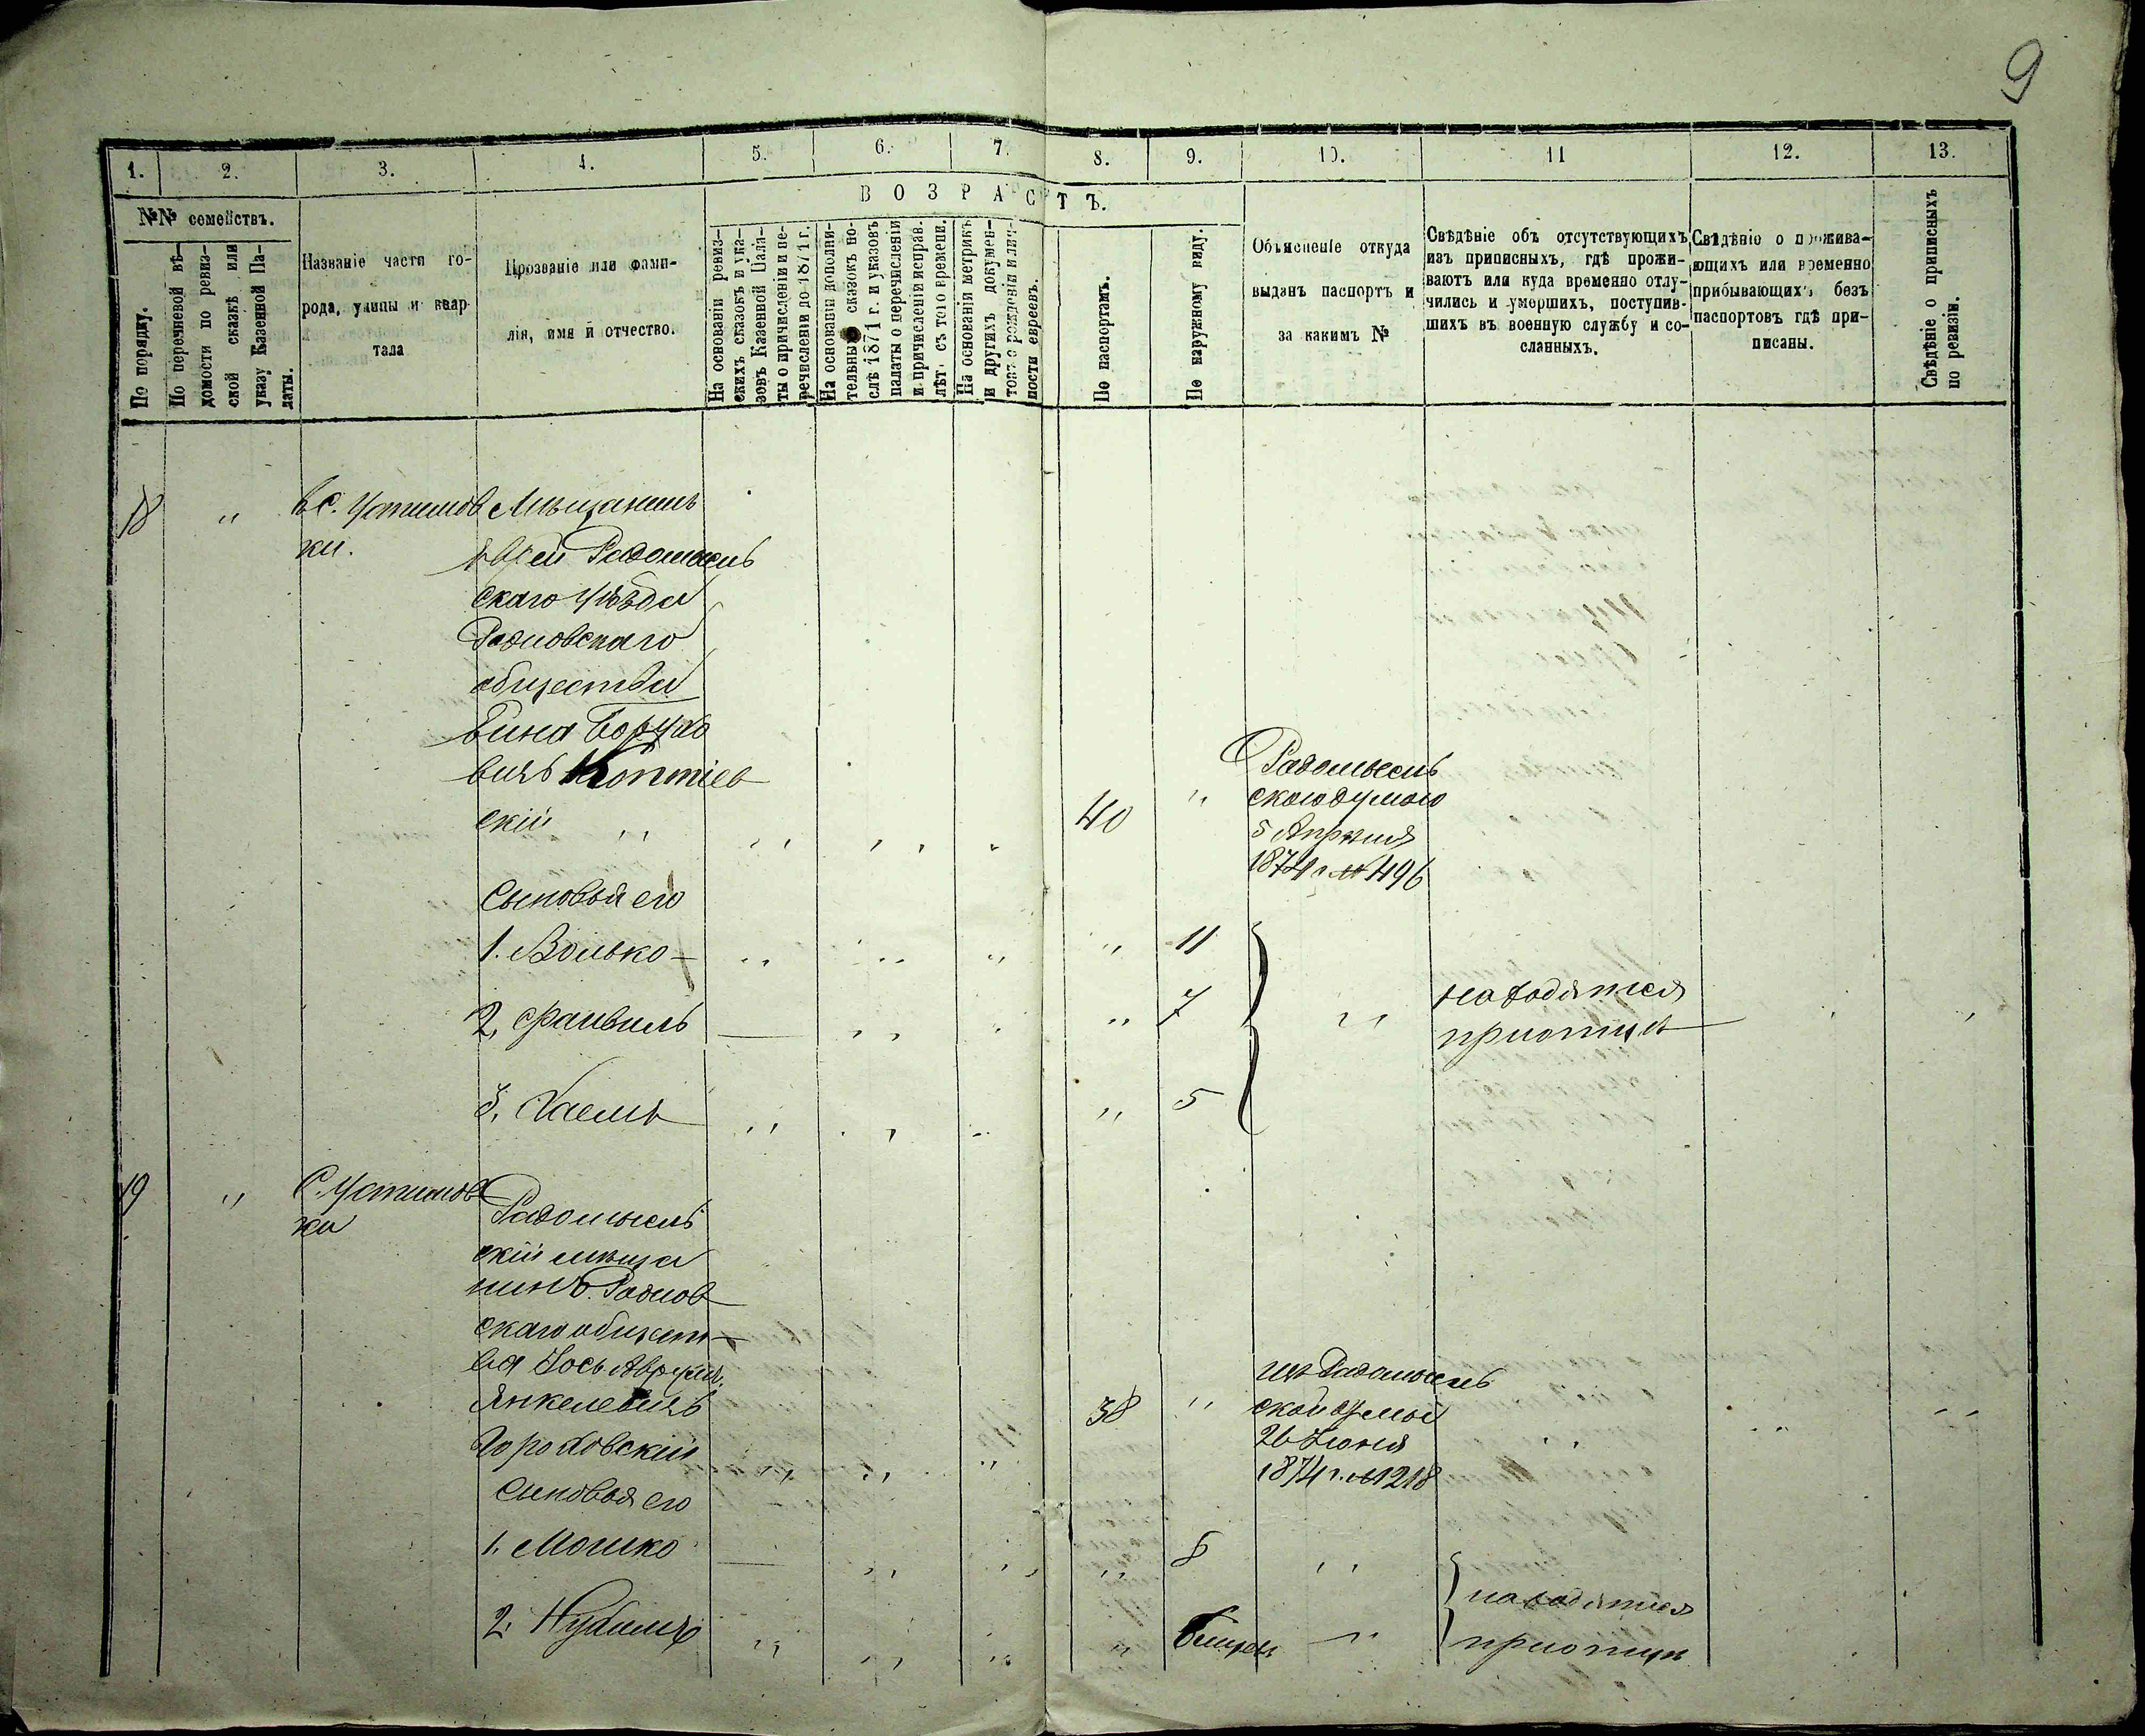 9
1. 2. 3. 4. 5. 6. 7. 8. 9. 10. 11 12. 13.
№№ семействъ.
По порядку.
По перечневой вѣ-
домости по ревиз-
ской сказкѣ или
указу Казенной Па-
латы.
Названіе части го-
рода, улицы и квар
тала
Прозваніе или фами-
лія, имя и отчество.
ВОЗРАСТЪ.
На основаніи ревиз-
скихъ сказокъ и ука-
зовъ Казенной Пала-
ты о причисленіи и пе-
речисленіи до 1871 г.
На основаніи дополни-
тельныхъ сказокъ по-
слѣ 1871 г. и указовъ
палаты о перечисленіи
и причисленіи исправ.
лѣт. съ того времени.
На основаніи метрикъ
и другихъ докумен-
товъ о рожденіи и лич-
ности евреевъ.
По паспортамъ.
По наружному виду.
Объясненіе откуда
выданъ паспортъ и
за какимъ №
Свѣдѣніе объ отсутствующихъ
изъ приписныхъ, гдѣ прожи-
ваютъ или куда временно отлу-
чились и умершихъ, поступив-
шихъ въ военную службу и со-
сланныхъ.
Свѣдѣніе о прожива-
ющихъ или временно
прибывающихъ безъ
паспортовъ гдѣ при-
писаны.
Свѣдѣніе о приписныхъ
по ревизіи.
18 " въ с. Устимов
ки.
Мѣщанинъ
еврей Радомысль
скаго уѣзда
Радиовскаго
общества
Бина Борухо
вичъ Коптіев
скій " " " " 40 "
Радомысль
скою думою
5 Апрѣля
1874 г. № 496
Сыновья его
1. Волько - " " " " 11
2. Фаивиль - " " " 7 "
находятся
при отцѣ
3. Хаемъ " " - " 5
19 " С. Устимов
ка
Радомысль
скій мѣща
нинъ Радиов
скаго общест-
ва Іось Аврум.
Янкелевичъ
Гороховскій " " " 38 "
из Радомысль
ской думы
26 Іюня
1874 г. № 1218
Сыновья его
1. Мошко - " " " 8 "
2. " " " " "
находятся
при отцѣ